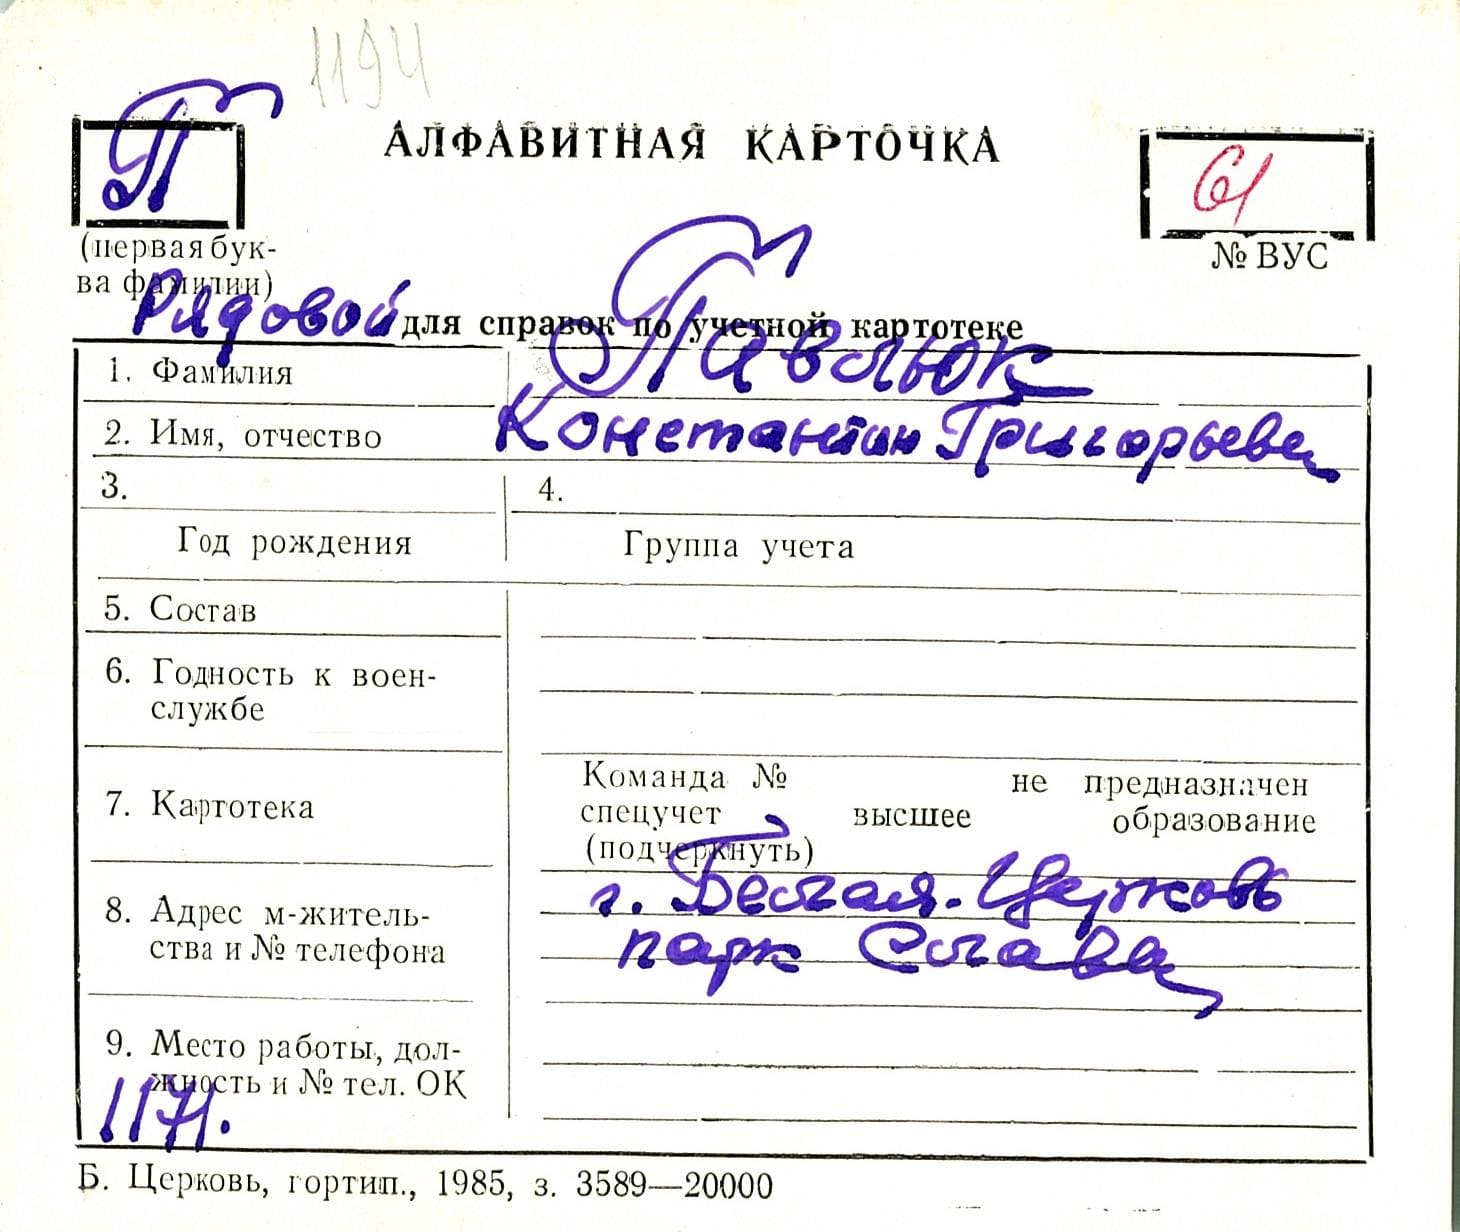 1194
П
АЛФАВИТНАЯ КАРТОЧКА
61
(первая бук-
ва фамилии)
№ ВУС
Рядовой для справок по учетной картотеке
1. Фамилия Павлюк
2. Имя, отчество Константин Григорьеви
3. 4.
Год рождения Группа учета
5. Состав
6. Годность к воен-
службе
7. Картотека
Команда № не предназначен
спецучет высшее образование
(подчеркнуть)
8. Адрес м-житель-
ства и № телефона
г. Белая-Церковь
парк Слава
9. Место работы, дол-
жность и № тел. ОК
1171.
Б. Церковь, гортип., 1985, з. 3589—20000